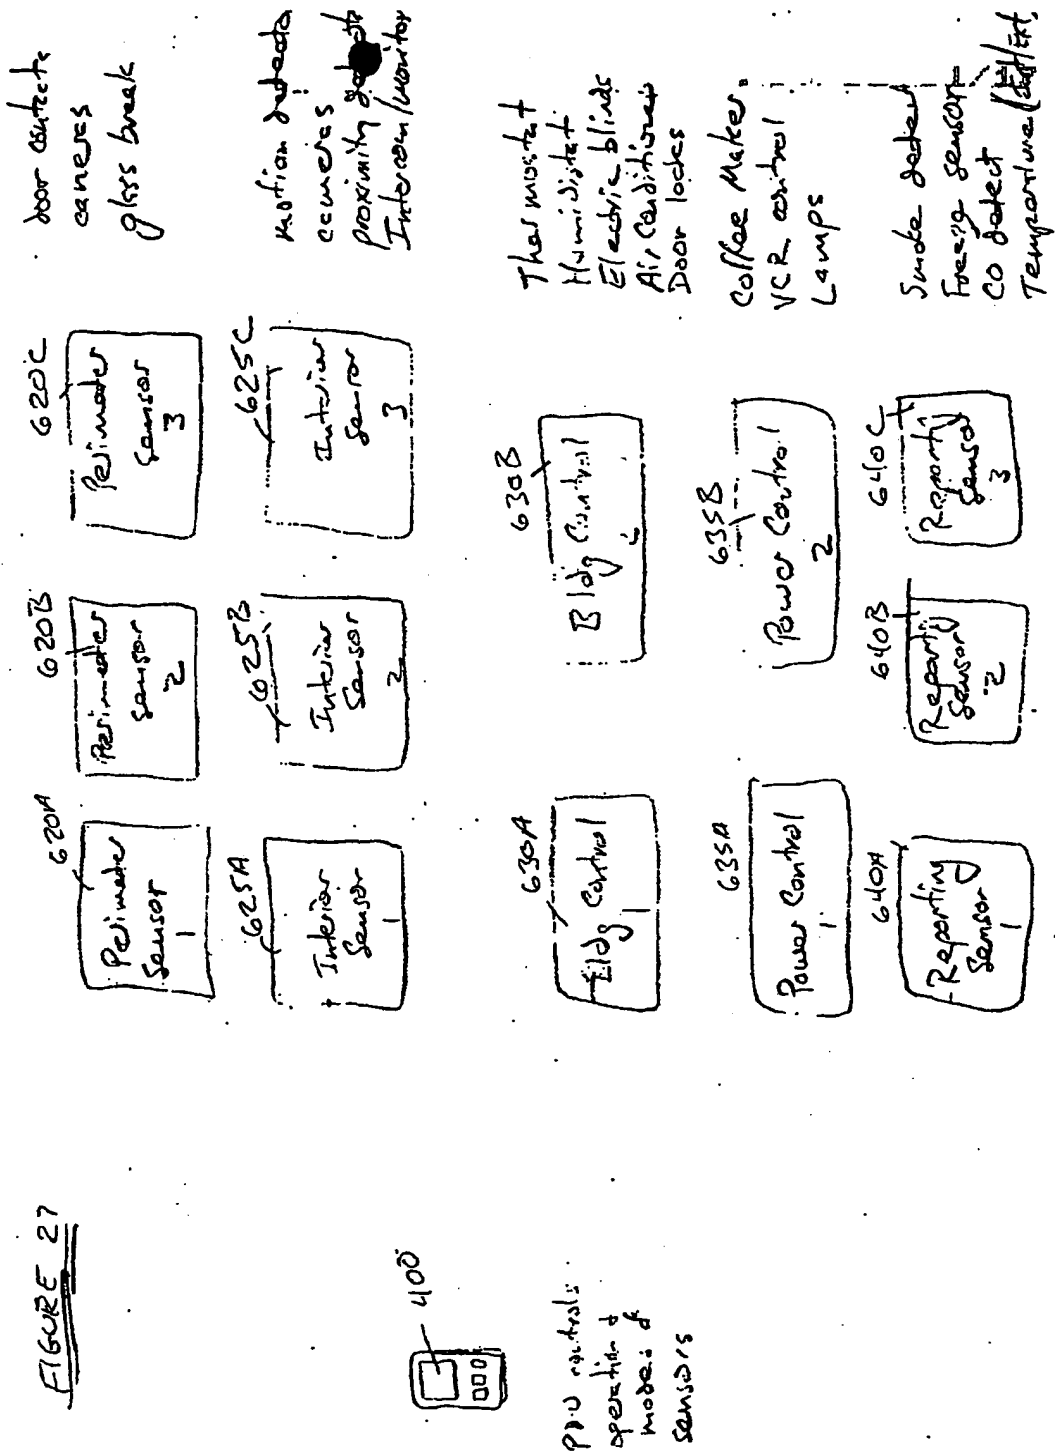 FIGURE 27
620A
Perimeter
Sensor
1
620B
Perimeter
sensor
2
620C
Perimeter
Sensor
3
door contacts
cameras
glass break
625A
Interior
Sensor
1
625B
Interior
Sensor
2
625C
Interior
Sensor
3
motion detector
cameras
proximity
Intercom/monitor
400
PDU controls
operation &
modes of
sensors
630A
Bldg Control
1
630B
Bldg Control
Thermostat
Humidistat
Electric blinds
Air Conditioner
Door locks
635A
Power Control
1
635B
Power Control
2
Coffee Maker
VCR control
Lamps
640A
Reporting
Sensor
1
640B
Reporting
Sensor
2
640C
Reporting
Sensor
3
Smoke detect
Freeze sensor
CO detect
Temperature (Int/Ext)